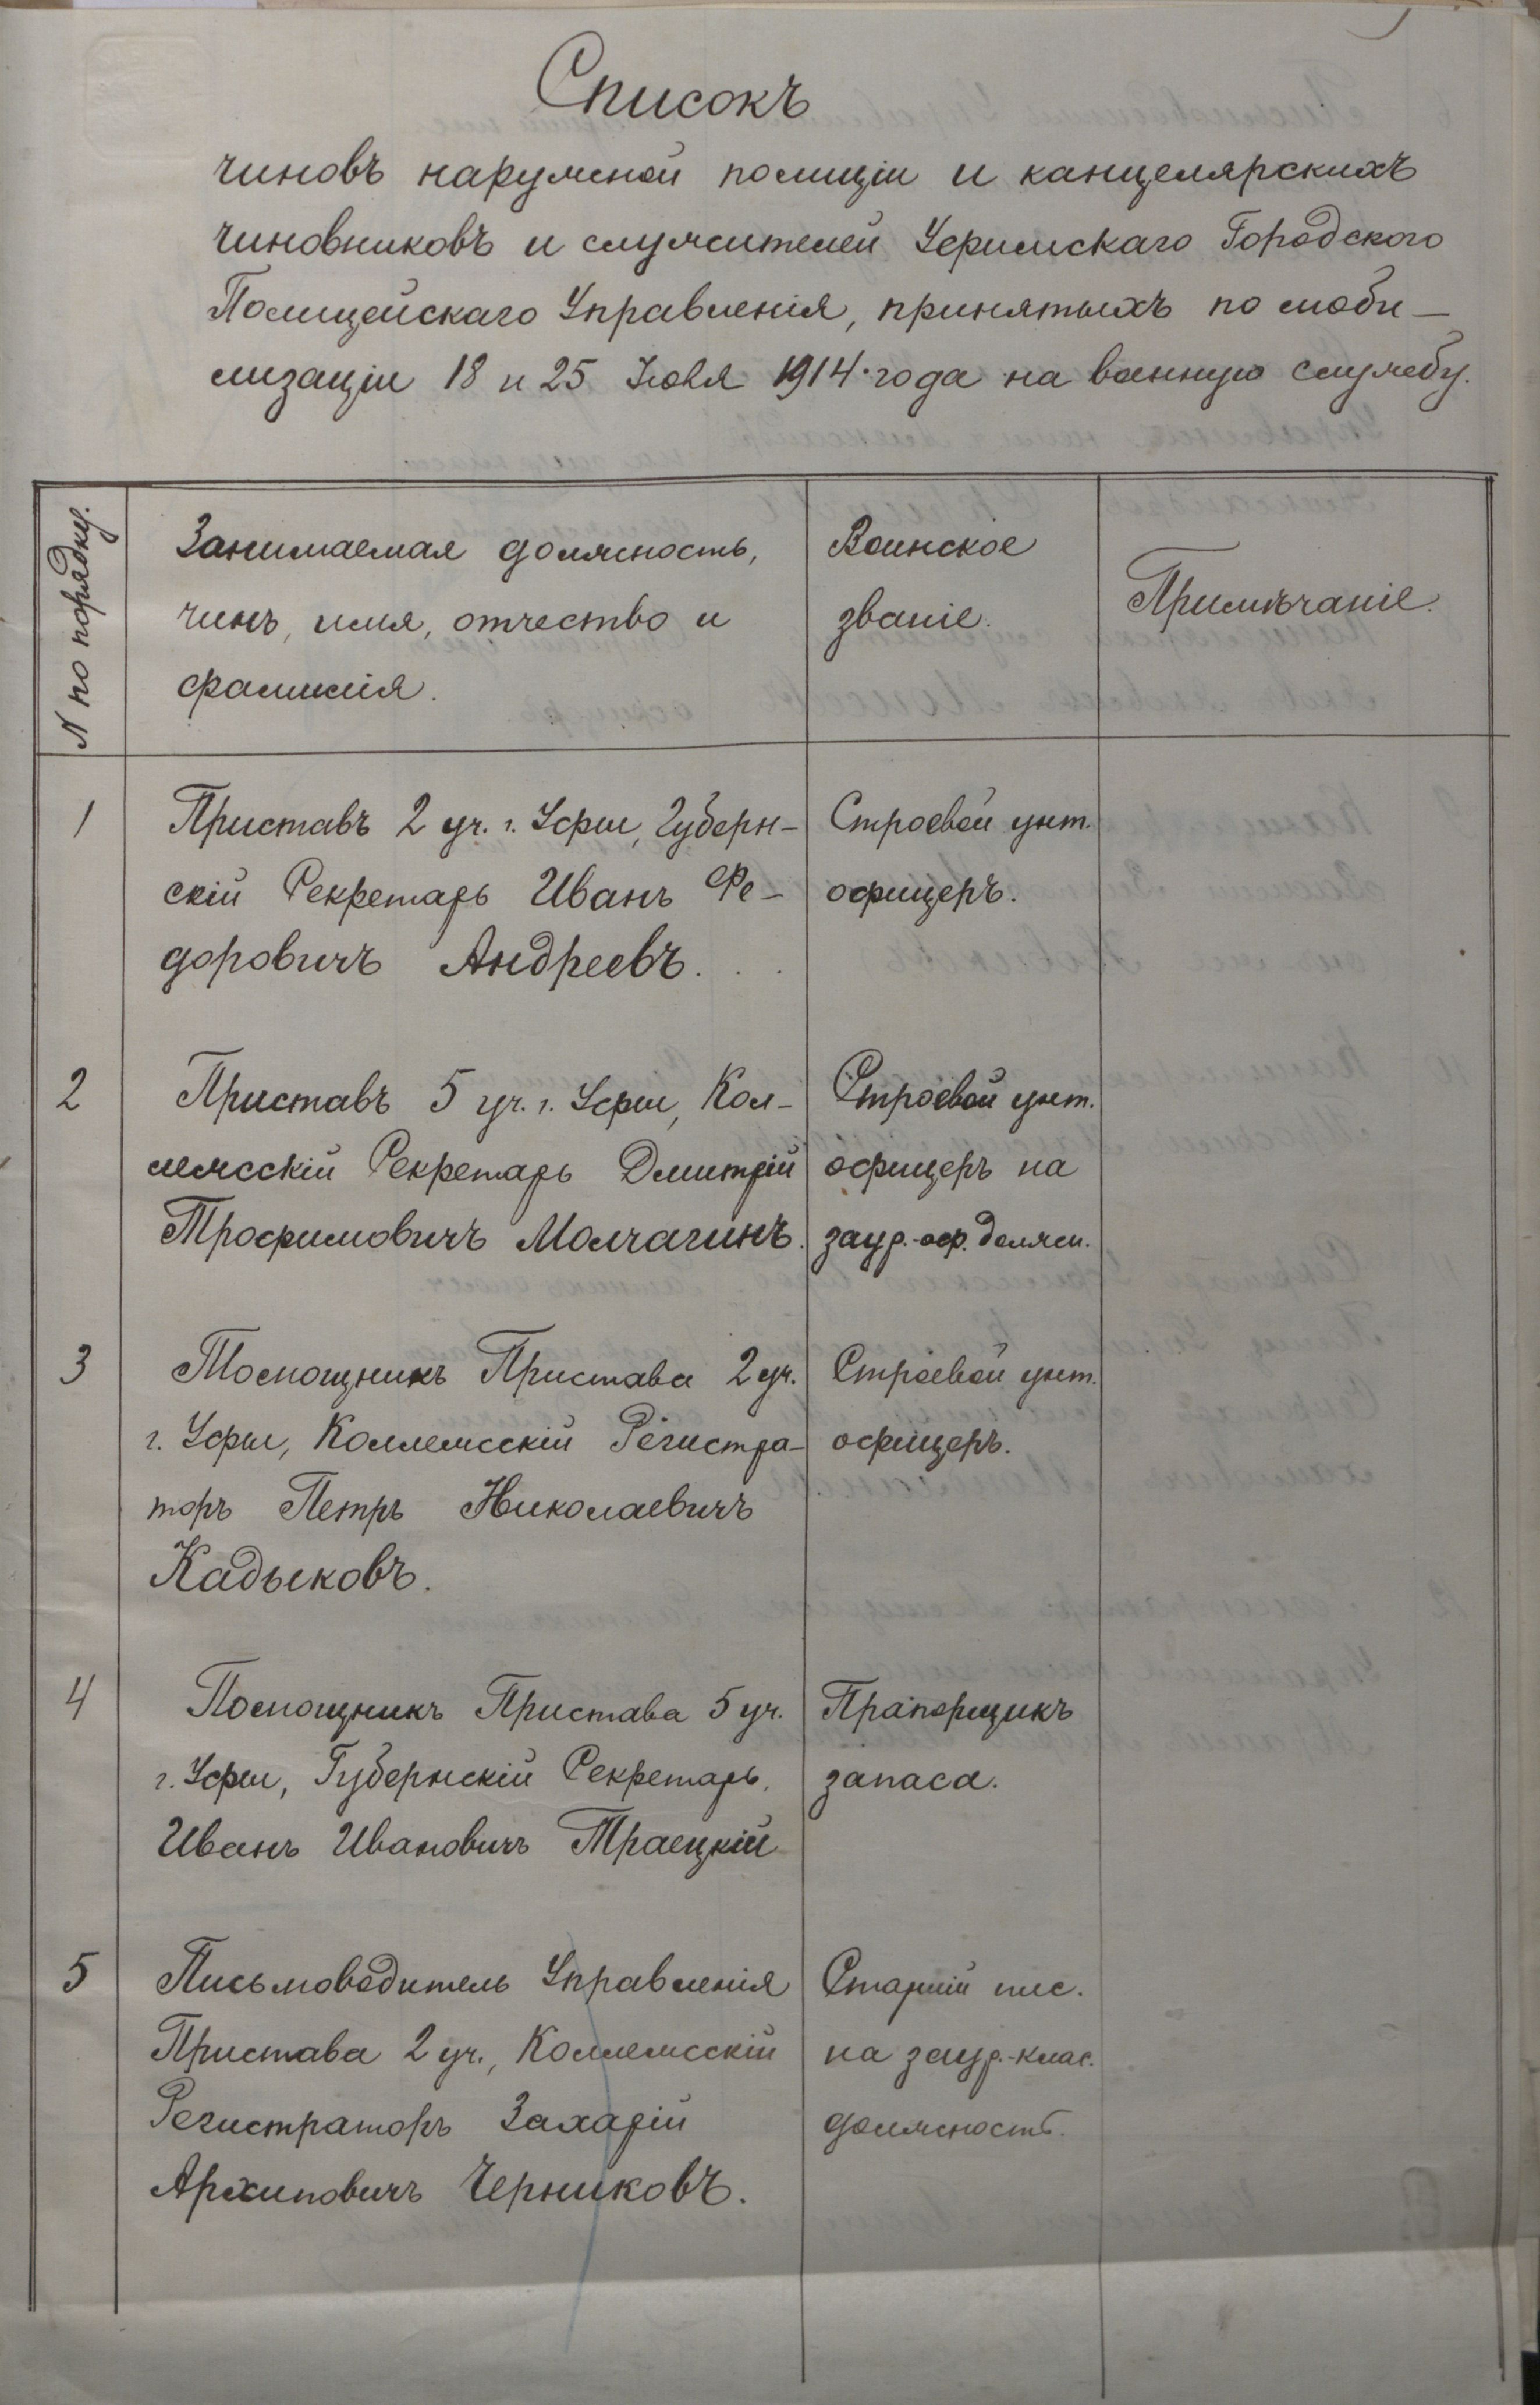 Списокъ
чиновъ наружной полиціи и канцелярскихъ
чиновниковъ и служителей Уфимскаго Городского
Полицейскаго Управленія, принятыхъ по моби-
лизаціи 18 и 25 Іюля 1914 года на военную службу.
N по порядку.
Занимаемая должность,
чинъ, имя, отчество и
фамилія.
Воинское
званіе.
Примѣчаніе.
1
Приставъ 2 уч. г. Уфы, Губерн-
скій Секретарь Иванъ Фе-
доровичъ Андреевъ.
Строевой унт.
офицеръ.
2
Приставъ 5 уч. г. Уфы, Кол-
лежсскій Секретарь Дмитрій
Трофимовичъ Молчагинъ.
Строевой унт.
офицеръ на
заур.-оф. должн.
3
Помощникъ Пристава 2 уч.
г. Уфы, Коллежсскій Регистра-
торъ Петръ Николаевичъ
Кадыковъ.
Строевой унт.
офицеръ.
4
Помощникъ Пристава 5 уч.
г. Уфы, Губернскій Секретарь
Иванъ Ивановичъ Траецкій
Прапорщикъ
запаса.
5
Письмоводитель Управленія
Пристава 2 уч., Коллежсскій
Регистраторъ Захарій
Архиповичъ Черниковъ.
Старшій пис.
на заур.-клас.
должность.